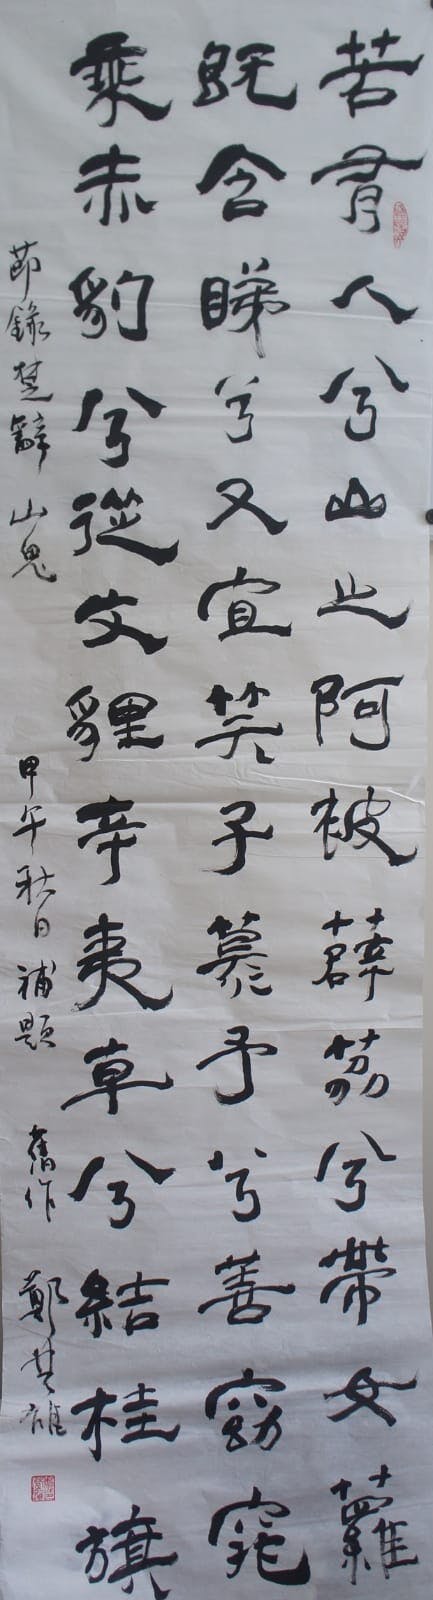 若有人兮山之阿被薜荔兮帶女蘿
既含睇兮又宜笑子慕予兮善窈窕
乘赤豹兮從文貍辛夷草兮結桂旗
節錄楚辭 山鬼 甲午秋日補題 舊作 鄭楚雄